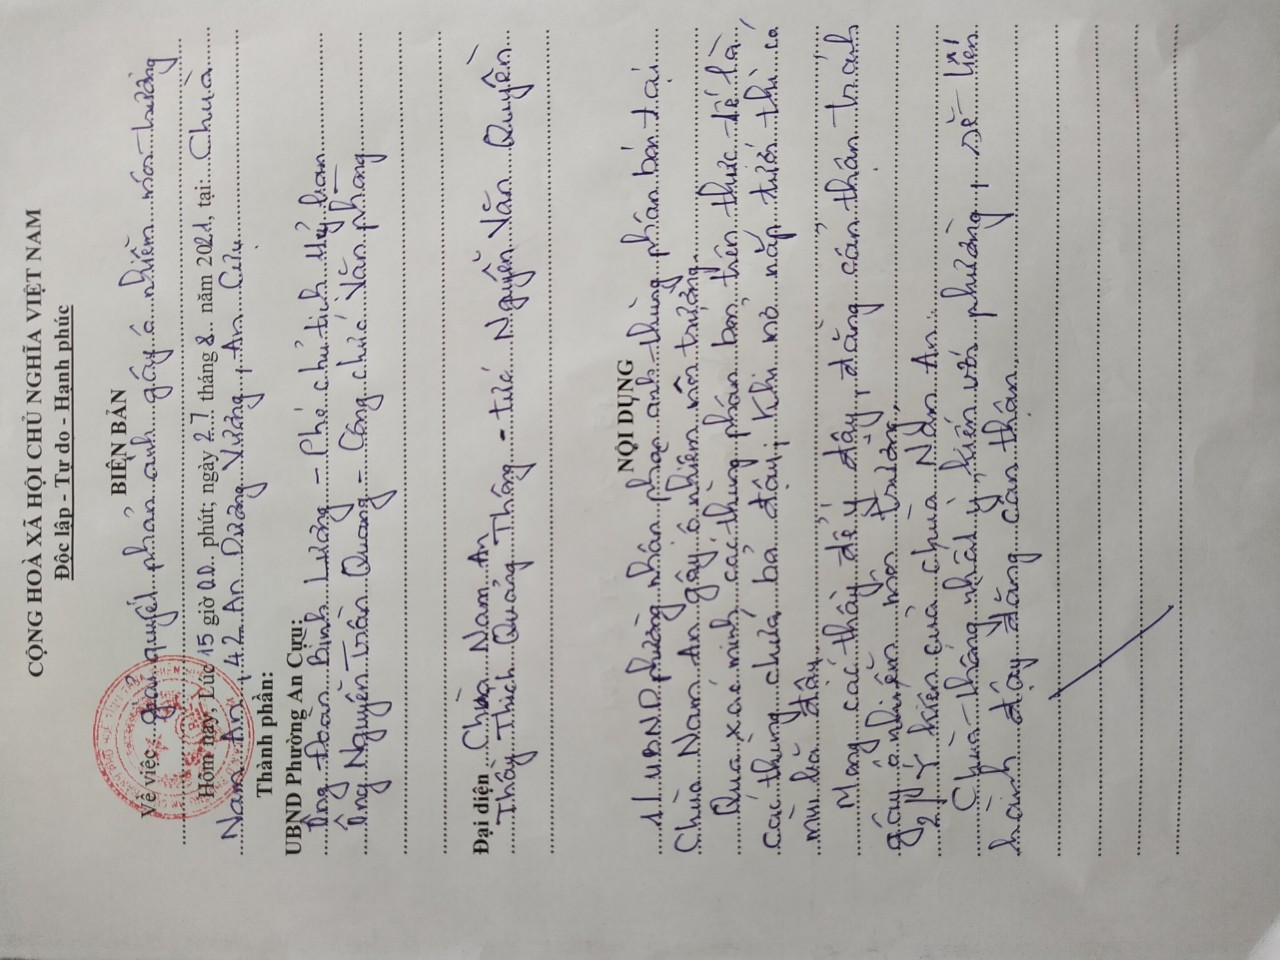 CỘNG HOÀ XÃ HỘI CHỦ NGHĨA VIỆT NAM
Độc lập - Tự do - Hạnh phúc
BIÊN BẢN
Về việc giải quyết phản ánh gây ô nhiễm môi trường
Hôm nay, Lúc 15 giờ 00 phút; ngày 27 tháng 8 năm 2021, tại: Chùa
Nam An, 42 An Dương Vương, An Cựu
Thành phần:
UBND Phường An Cựu:
Ông Đoàn Bình Lương - Phó chủ tịch Uỷ ban
Ông Nguyễn Trần Quang - Công chức Văn phòng
Đại diện Chùa Nam An
Thầy Thích Quảng Thông - tức Nguyễn Văn Quyền
NỘI DUNG
1, UBND phường nhận phản ánh thùng phân bón tại
Chùa Nam An gây ô nhiễm môi trường
Qua xác minh các thùng phân bón trên thực tế là
các thùng chứa bả đậy, Khi mở nắp tưới thì có
mùi bả đậy
Mong các thầy để ý đậy, đằng cẩn thận tránh
gây ô nhiễm môi trường
2, Ý kiến của chùa Nam An
Chùa thống nhất ý kiến với phường, sẽ tiến
hành đậy đằng cẩn thận